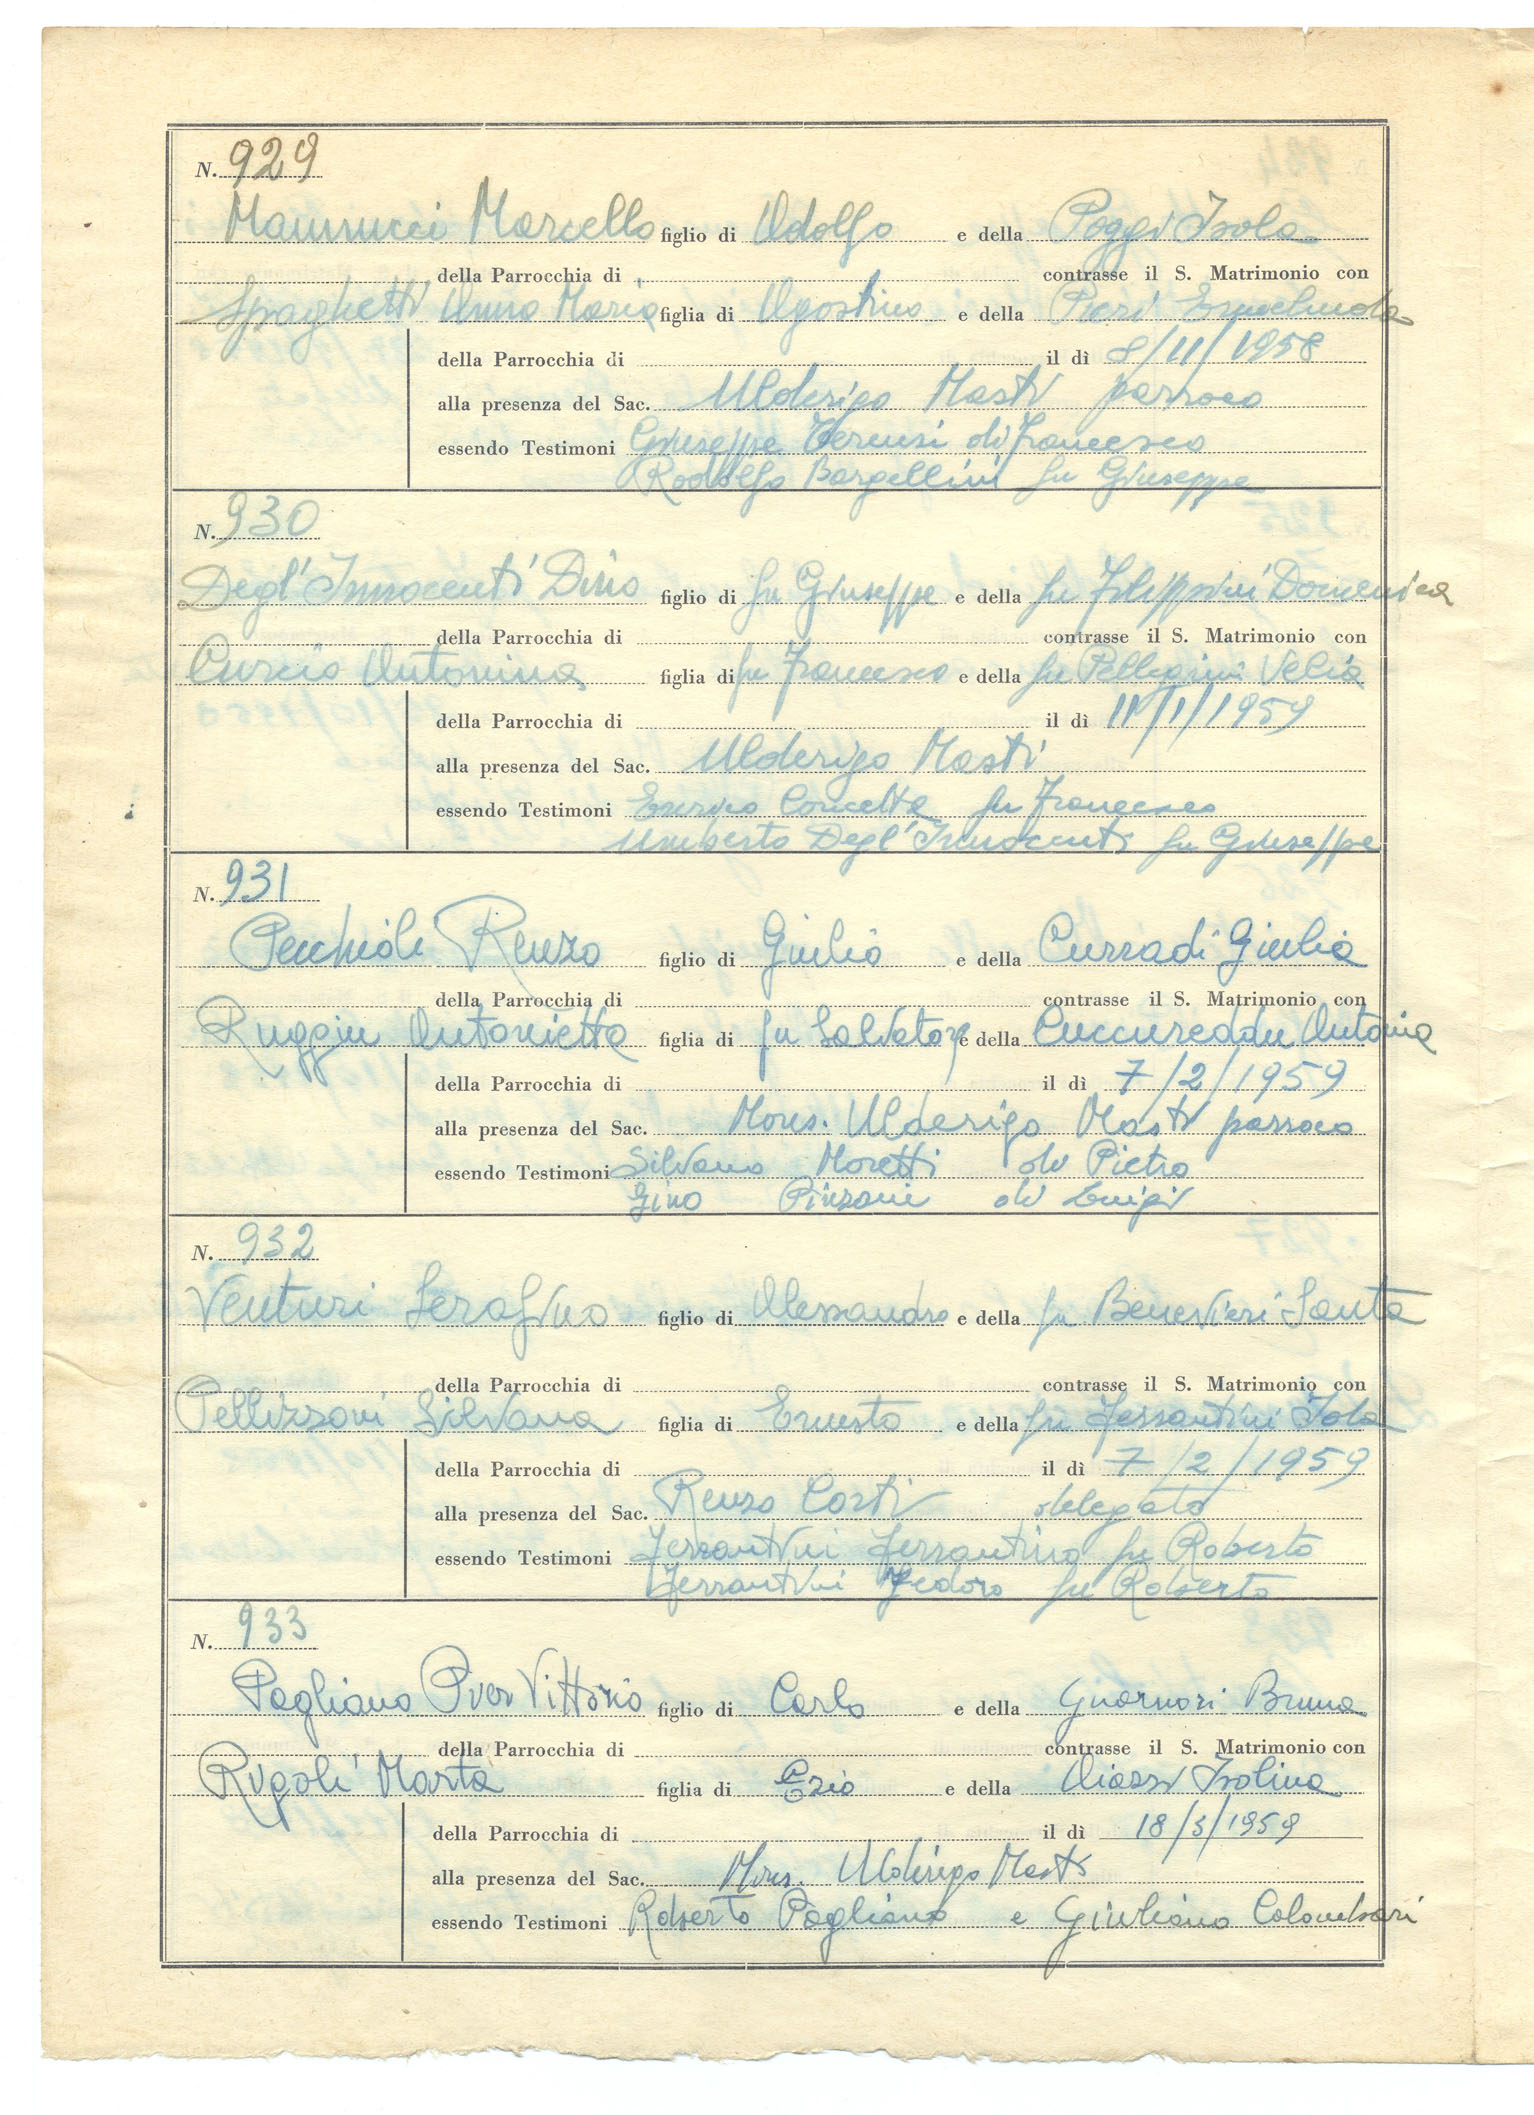 N. 929
Mannucci Marcello figlio di Adolfo e della Poggi Isola
della Parrocchia di contrasse il S. Matrimonio con
Spaghetti Anna Maria figlia di Agostino e della Pieri Ermelinda
della Parrocchia di il dì 8/11/1958
alla presenza del Sac. Ulderigo Masti parroco
essendo Testimoni Giuseppe Terensi di Francesco
Rodolfo Bargellini fu Giuseppe
N. 930
Degl'Innocenti Dino figlio di fu Giuseppe e della fu Filippini Domenica
della Parrocchia di contrasse il S. Matrimonio con
Curcio Antonina figlia di fu Francesco e della fu Pellegrini Velia
della Parrocchia di il dì 11/1/1959
alla presenza del Sac. Ulderigo Masti
essendo Testimoni Concetta fu Francesco
Umberto Degl'Innocenti fu Giuseppe
N. 931
Pecchioli Renzo figlio di Giulio e della Curradi Giulia
della Parrocchia di contrasse il S. Matrimonio con
Ruggiu Antonietta figlia di fu Salvatore e della Cuccureddu Antonia
della Parrocchia di il dì 7/2/1959
alla presenza del Sac. Mons. Ulderigo Masti parroco
essendo Testimoni Silvano Moretti di Pietro
Gino Pinzani di Luigi
N. 932
Venturi Serafino figlio di Alessandro e della fu Benevieri Santa
della Parrocchia di contrasse il S. Matrimonio con
Pellizzoni Silvana figlia di Ernesto e della fu Ferrantini Iola
della Parrocchia di il dì 7/2/1959
alla presenza del Sac. Renzo Corti delegato
essendo Testimoni Ferrantini Ferrantino fu Roberto
Ferrantini Fedoro fu Roberto
N. 933
Pagliano Pier Vittorio figlio di Carlo e della Guarnori Bruna
della Parrocchia di contrasse il S. Matrimonio con
Rugoli Marta figlia di Ezio e della Isolina
della Parrocchia di il dì 18/3/1959
alla presenza del Sac. Mons. Ulderigo Masti
essendo Testimoni Roberto Pagliano e Giuliano Colombari